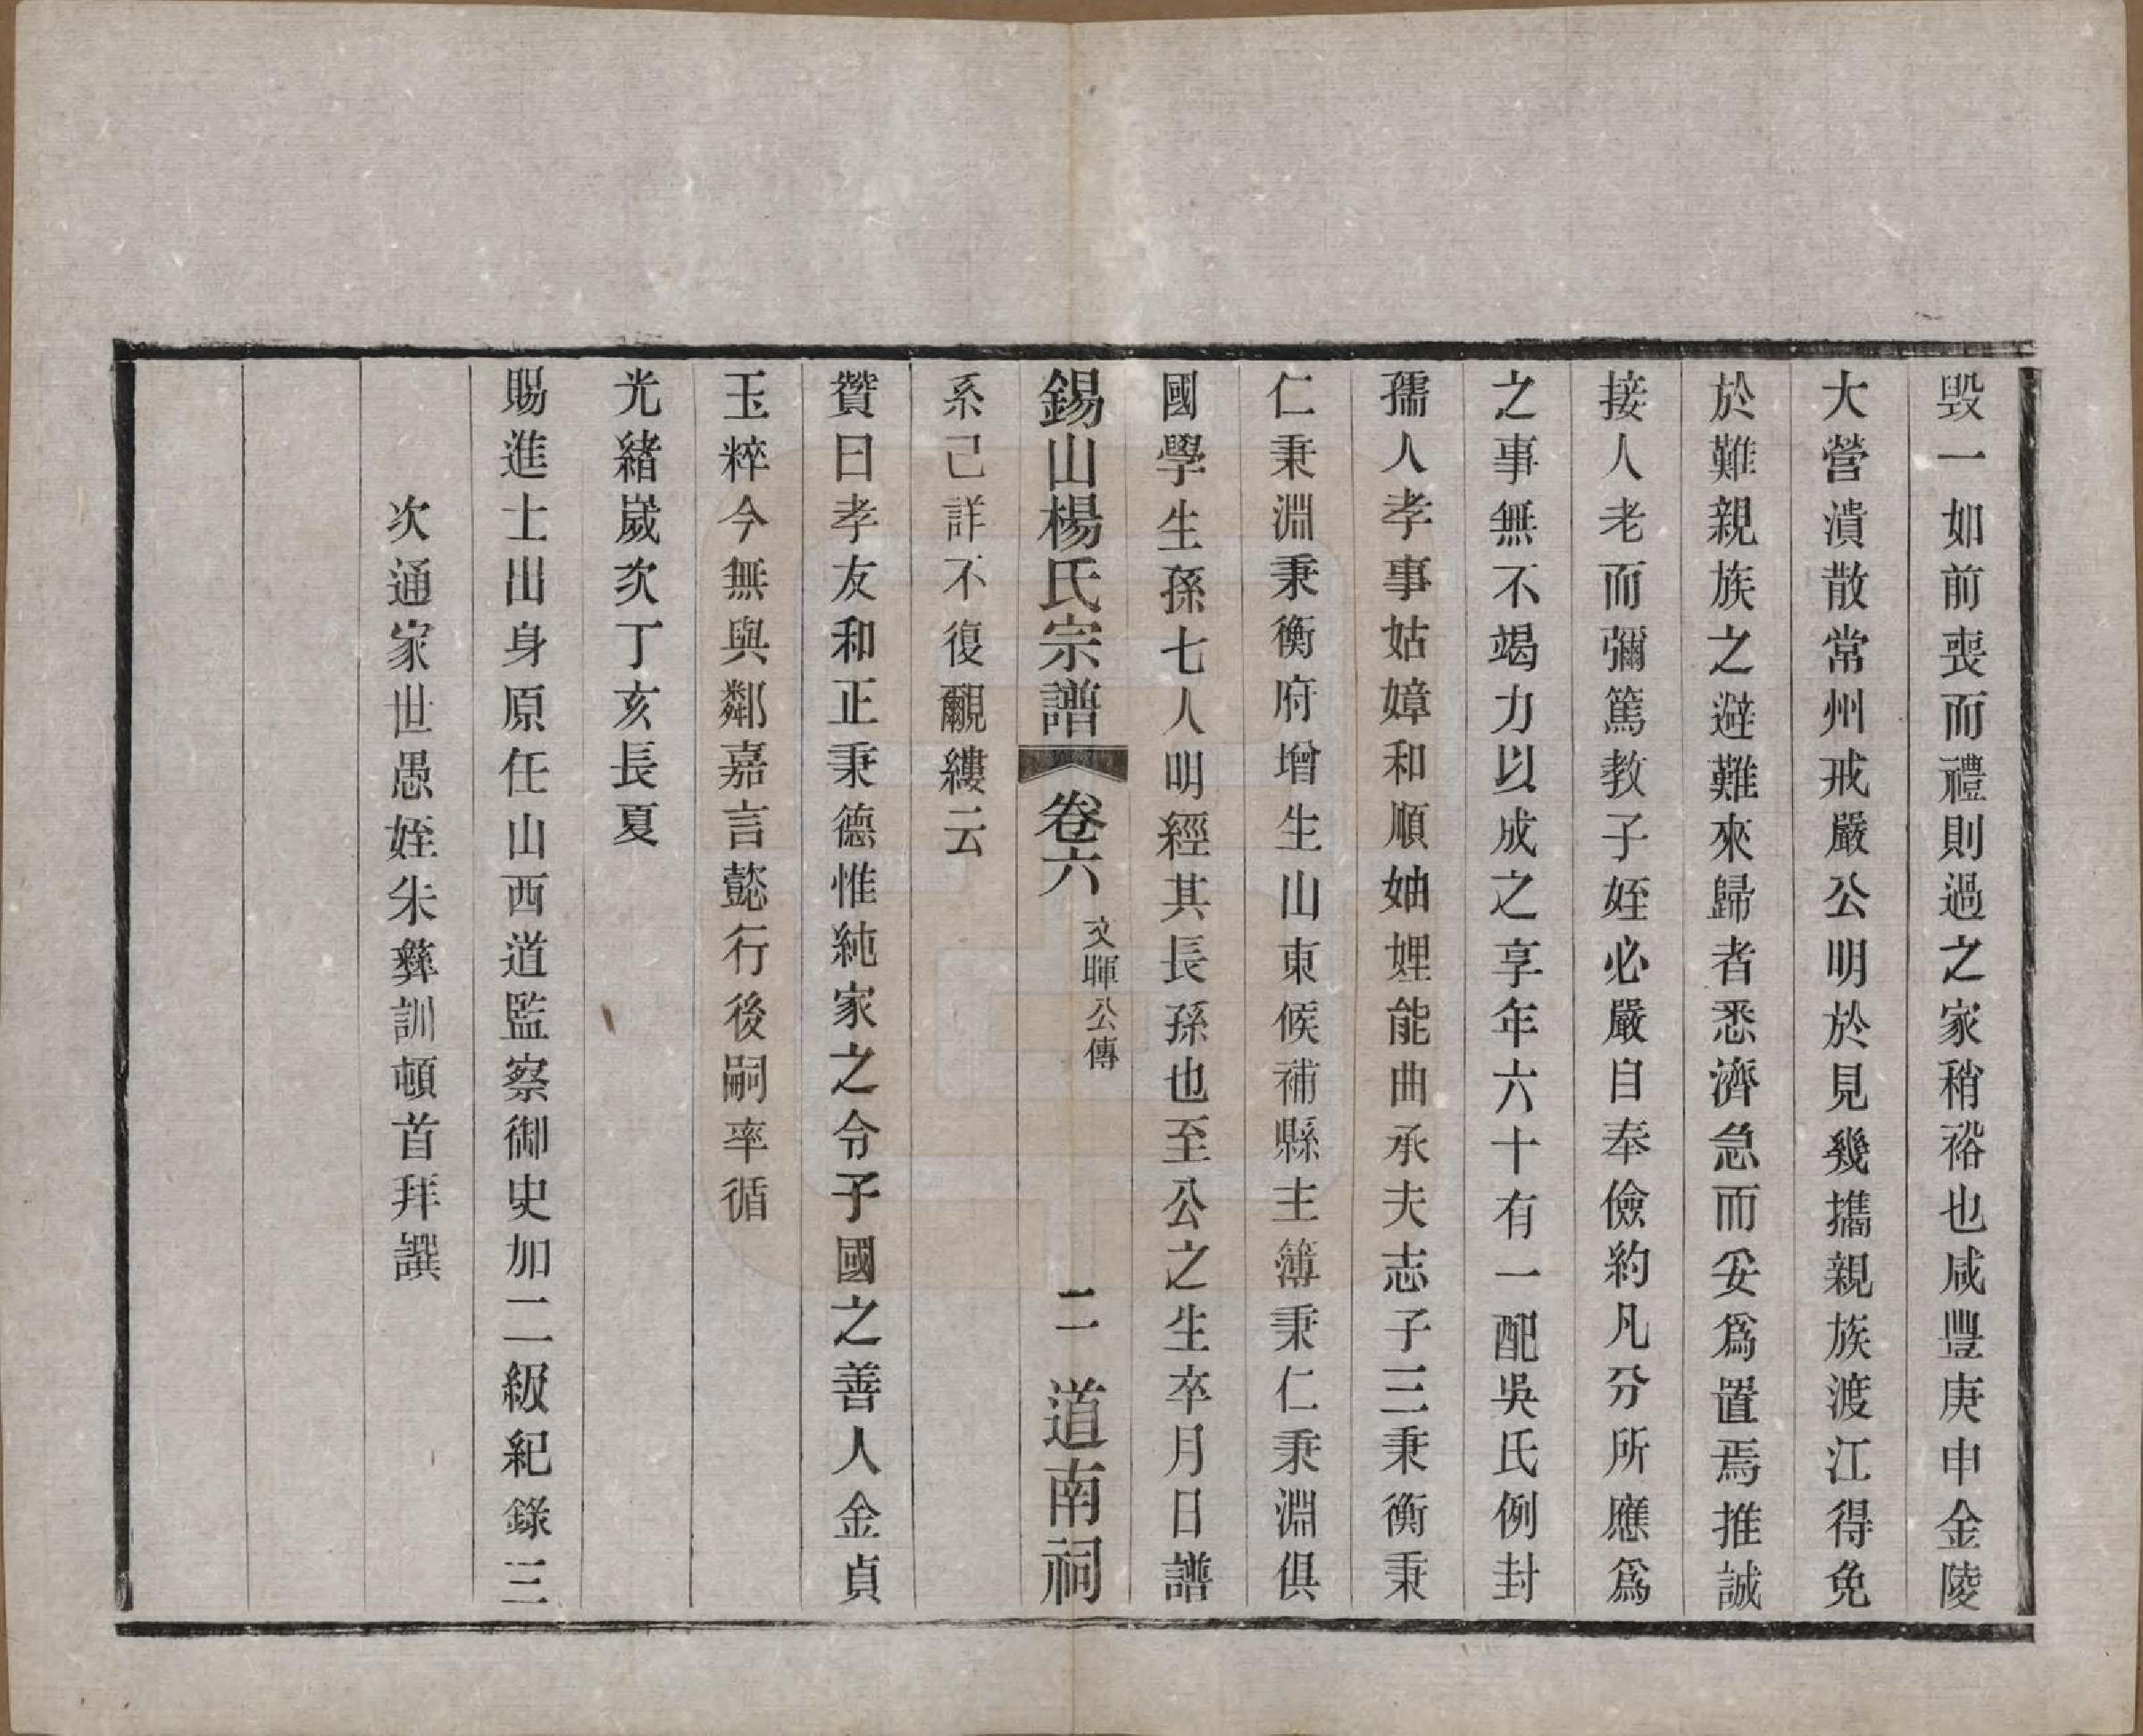 毁一如前喪而禮則過之家稍裕也咸豐庚申金陵
大營潰散常州戒嚴公明於見幾攜親族渡江得免
於難親族之避難來歸者悉濟急而妥爲置焉推誠
接人老而彌篤教子姪必嚴自奉儉約凡分所應爲
之事無不竭力以成之享年六十有一配吳氏例封
孺人孝事姑嫜和順妯娌能曲承夫志子三秉衡秉
仁秉淵秉衡府增生山東候補縣主簿秉仁秉淵俱
國學生孫七人明經其長孫也至公之生卒月日譜
錫山楊氏宗譜 卷六 文暉公傳 二 道南祠
系己詳不復覼縷云
贊曰孝友和正秉德惟純家之令子國之善人金貞
玉粹今無與鄰嘉言懿行後嗣率循
光緒嵗次丁亥長夏
賜進士出身原任山西道監察御史加二級紀錄三
次通家世愚姪朱彝訓頓首拜譔